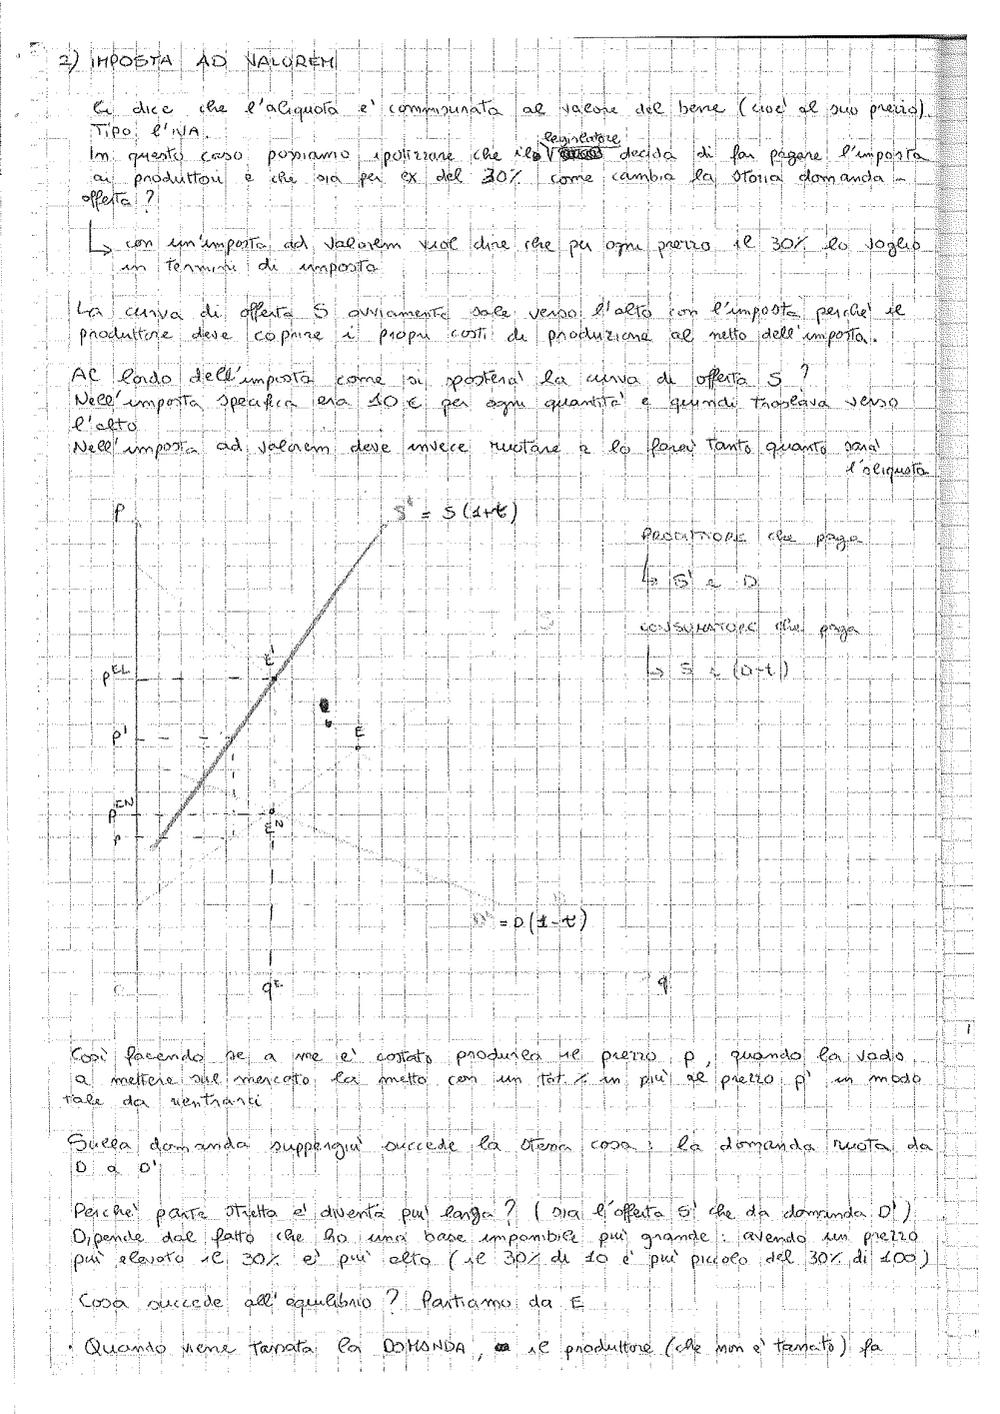 2) IMPOSTA AD VALOREM
Ci dice che l'aliquota e' commisurata al valore del bene (cioe' al suo prezzo).
Tipo l'IVA.
legislatore
In questo caso possiamo ipotizzare che il decida di far pagare l'imposta
ai produttori e che sia per ex del 30% come cambia la storia domanda -
offerta?
↳ con un'imposta ad valorem vuol dire che per ogni prezzo il 30% lo voglio
in termini di imposta
La curva di offerta S ovviamente sale verso l'alto con l'imposta perche' il
produttore deve coprire i propri costi di produzione al netto dell'imposta.
Al lordo dell'imposta come si spostera' la curva di offerta S?
Nell'imposta specifica era 10€ per ogni quantita' e quindi traslava verso
l'alto
Nell'imposta ad valorem deve invece ruotare e lo fara' tanto quanto sara'
l'aliquota
P
S' = S(1+t)
PRODUTTORE che paga
↳ S' e D
S
CONSUMATORE che paga
↳ S e (D-t)
E'
P^EL
E
P'
P^EN
E^N
P
D
D' = D(1-t)
O
q^E
q
Cosi' facendo se a me e' costato produrla il prezzo p, quando la vado
a mettere sul mercato la metto con un tot % in piu' al prezzo p' in modo
tale da rientrarci
Sulla domanda suppergiu' succede la stessa cosa: la domanda ruota da
D a D'
Perche' parte stretta e diventa piu' larga? (sia l'offerta S' che da domanda D')
Dipende dal fatto che ho una base imponibile piu' grande: avendo un prezzo
piu' elevato il 30% e' piu' alto (il 30% di 10 e' piu' piccolo del 30% di 100)
Cosa succede all'equilibrio? Partiamo da E
• Quando viene tassata la DOMANDA, il produttore (che non e' tassato) fa